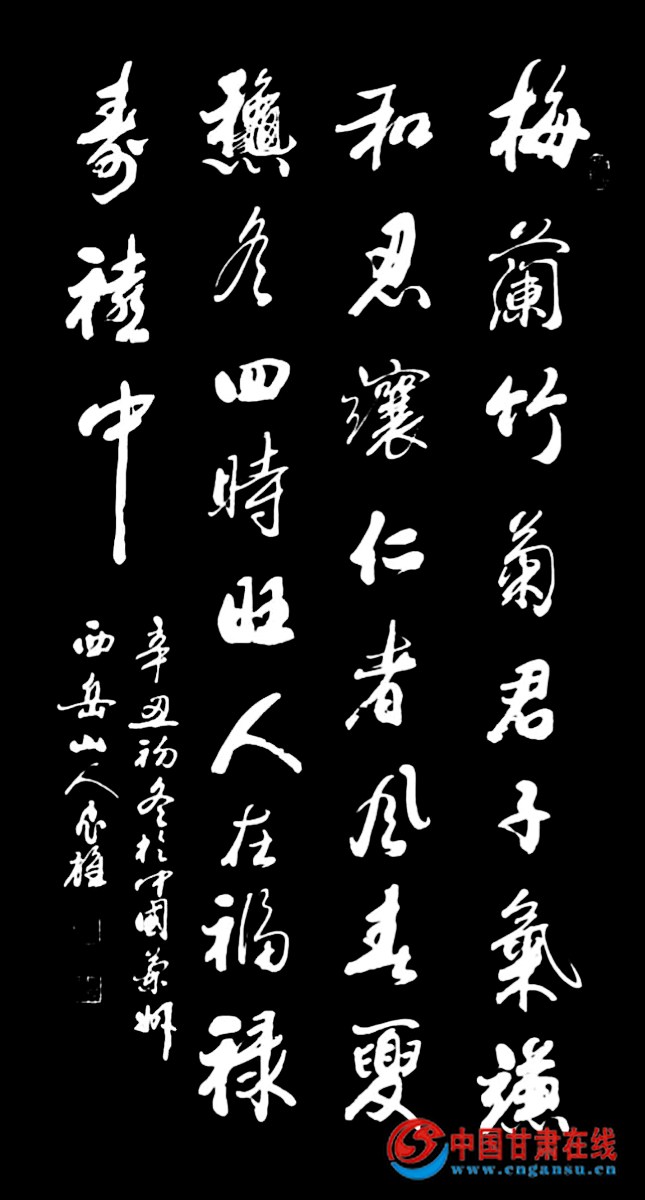 梅蘭竹菊君子氣謙
和忍讓仁者風春夏
龝冬四時旺人在福禄
壽禧中
辛丑初冬於中國蘭州
西岳山人
中国甘肃在线
www.cngansu.cn